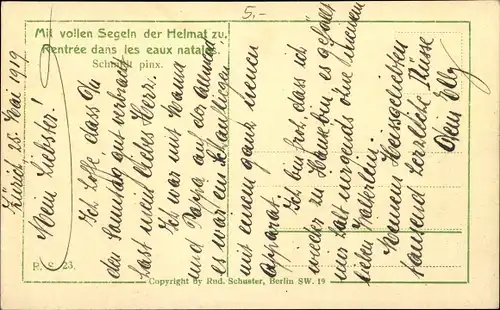 5.-
Mit vollen Segeln der Heimat zu.
Rentrée dans les eaux natales.
Schmidt pinx.
Zürich 25. Mai 1919
Mein Liebster!
Ich hoffe dass Du
den Sonntag gut verbracht
hast mein liebes Herz.
Ich war mit Mama
und Papa auf der
es war ein Schaufliegen
mit einem ganz neuen
Apparat.
Ich bin froh, dass ich
wieder zu Hause bin es gefällt
mir halt nirgends ohne meinen
lieben
Meinem Heissgeliebten
tausend herzliche Küsse
Dein Elly
R. S. 23.
Copyright by Rud. Schuster, Berlin SW. 19